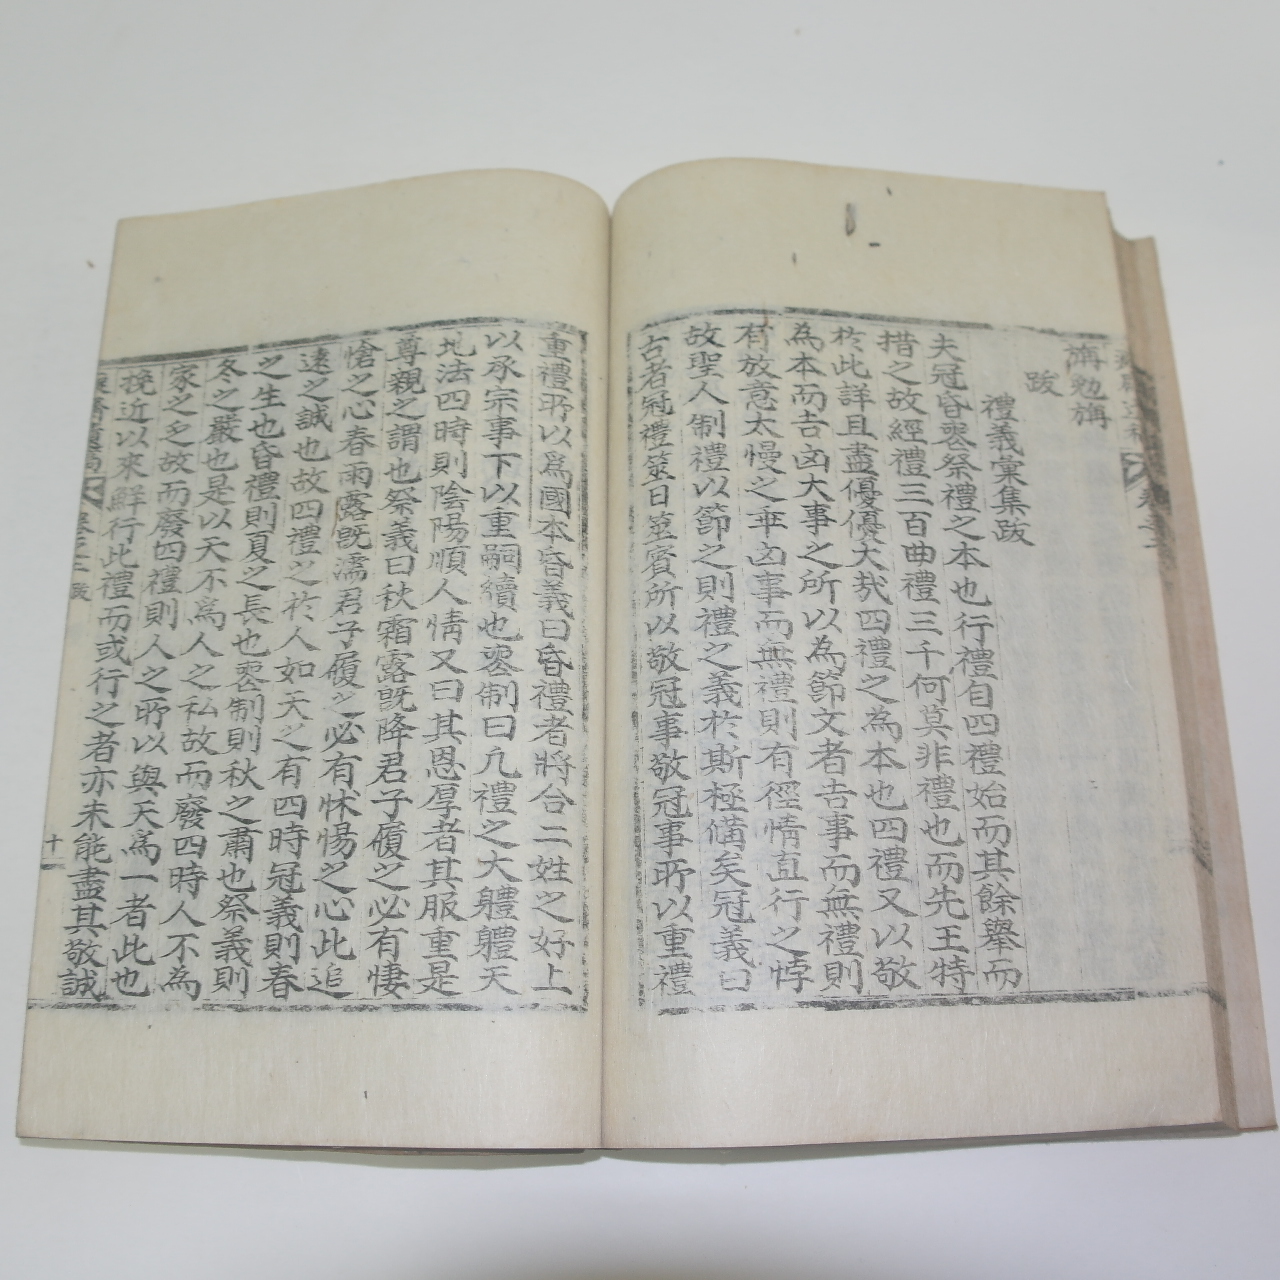 旃勉旃
跋
禮義彙集跋
夫冠昏喪祭禮之本也行禮自四禮始而其餘舉而
措之故經禮三百曲禮三千何莫非禮也而先王特
於此詳且盡優優大哉四禮之為本也四禮又以敬
為本而吉凶大事之所以為節文者吉事而無禮則
有放意太慢之乖凶事而無禮則有徑情直行之悖
故聖人制禮以節之則禮之義於斯極備矣冠義曰
古者冠禮筮日筮賓所以敬冠事敬冠事所以重禮
重禮所以爲國本昏義曰昏禮者將合二姓之好上
以承宗事下以重嗣續也喪制曰凡禮之大體體天
地法四時則陰陽順人情又曰其恩厚者其服重是
尊親之謂也祭義曰秋霜露既降君子履之必有悽
愴之心春雨露既濡君子履之必有怵惕之心此追
遠之誠也故四禮之於人如天之有四時冠義則春
之生也昏禮則夏之長也喪制則秋之肅也祭義則
冬之嚴也是以天不爲人之私故而廢四時人不為
家之乏故而廢四禮則人之所以與天爲一者此也
挽近以來鮮行此禮而或行之者亦未能盡其敬誠
卷之二 跋
十一